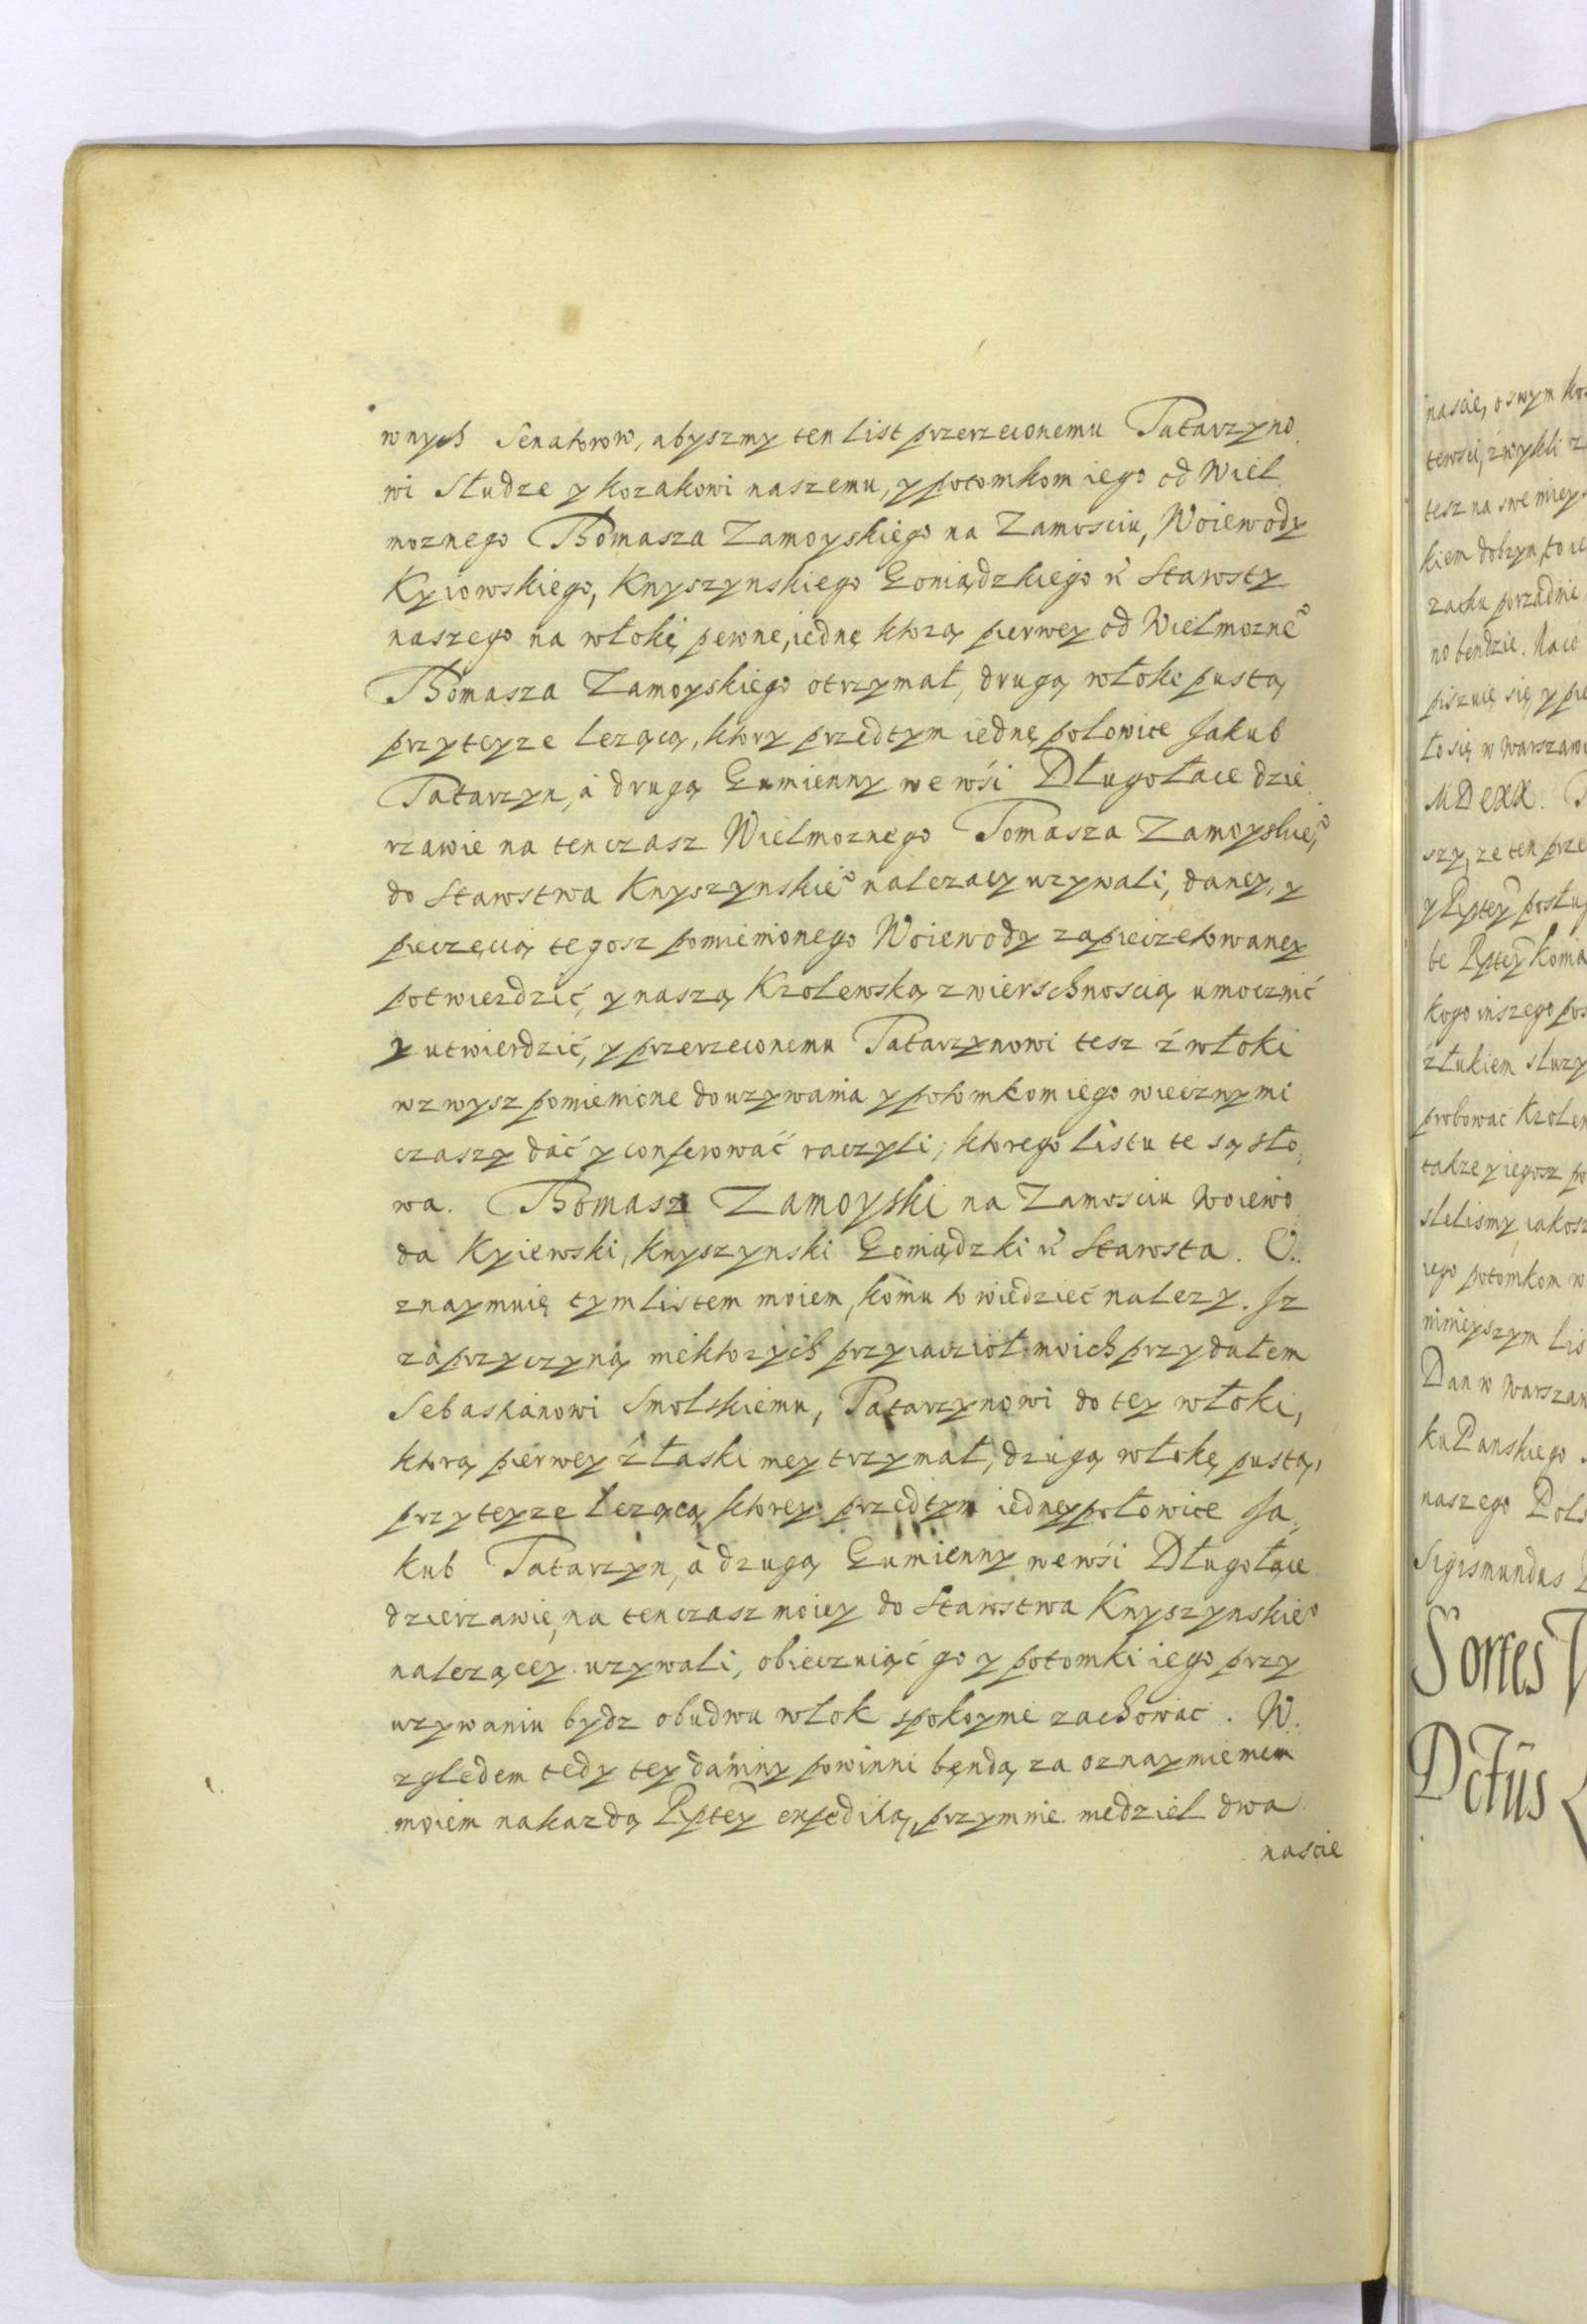 wnych Senatorow, abyszmy ten list przerzeconemu Tatarzyno
wi Słudze y kozakowi naszemu, y potomkom iego od Wiel
moznego Thomasza Zamoyskiego na Zamosciu, Woiewody
Kyiowskiego, Knyszynskiego Goniądzkiego Starosty
naszego na włokę pewne, iednę ktorą pierwey od Wielmozneo
Thomasza Zamoyskiego otrzymał, drugą włokę pustą
przyteyze lezącą, ktory przedtym iednę polowice Jakub
Tatarzyn, a drugą Gumienny we wsi Długołace dzie
rzawie na tenczasz Wielmoznego Tomasza Zamoyskieo,
do Starostwa Knyszynskieo nalezacy uzywali, daney, y
pieczęcią tegosz pomienionego Woiewody zapieczetowaney
potwierdzić, y naszą Krolewską zwierschnoscią umocznić
y utwierdzić, y przerzeconemu Tatarzynowi tesz ź włoki
wzwysz pomienione do uzywania y potomkom iego wiecznymi
czaszy dać y conferować raczyli; ktorego listu te są sło
wa. Thomasz Zamoyski na Zamosciu Woiewo
da Kyiewski, Knyszynski Goniądzki Starosta. O
znaymuię tym listem moiem, komu to wiedzieć nalezy. Jz
za przyczyną niektorych przyiacziół moich przydałem
Sebastianowi Smolskiemu, Tatarzynowi do tey włoki,
ktorą pierwey ź łaski mey trzymał, drugą włokę pustą,
przyteyze lezącą ktorey przedtym iedney połowice Ja
kub Tatarzyn, a drugą Gumienny we wsi Długołące
dzierzawie, na tenczasz moiey do Starostwa Knyszynskieo
nalezącey uzywali, obiecuiąć go y potomki iego przy
uzywaniu bydz obudwu włok spokoynie zachować. W
zgledem tedy tey daniny powinni bendą za oznaymieniem
moiem na kazdą Rptey expeditią, przy mnie niedziel dwa
nascie
nascie, o swym
tewsci, zwykli
tesz na swe
kiem dobrym,
zacku porzadnie
no bendzie. Na co
piszuię się, y
to się w Warszaw
MDCXX.
szy, ze ten prze
y Rptey posłu
be Rptey
kogo inszego
ź łukiem słuzy
probowac Krolew
takze y iegosz po
slelismy, iakosz
iego potomkom w
ninieyszym Lis
Dan w Warszaw
ku Panskiego
naszego Pols
Sigismundus